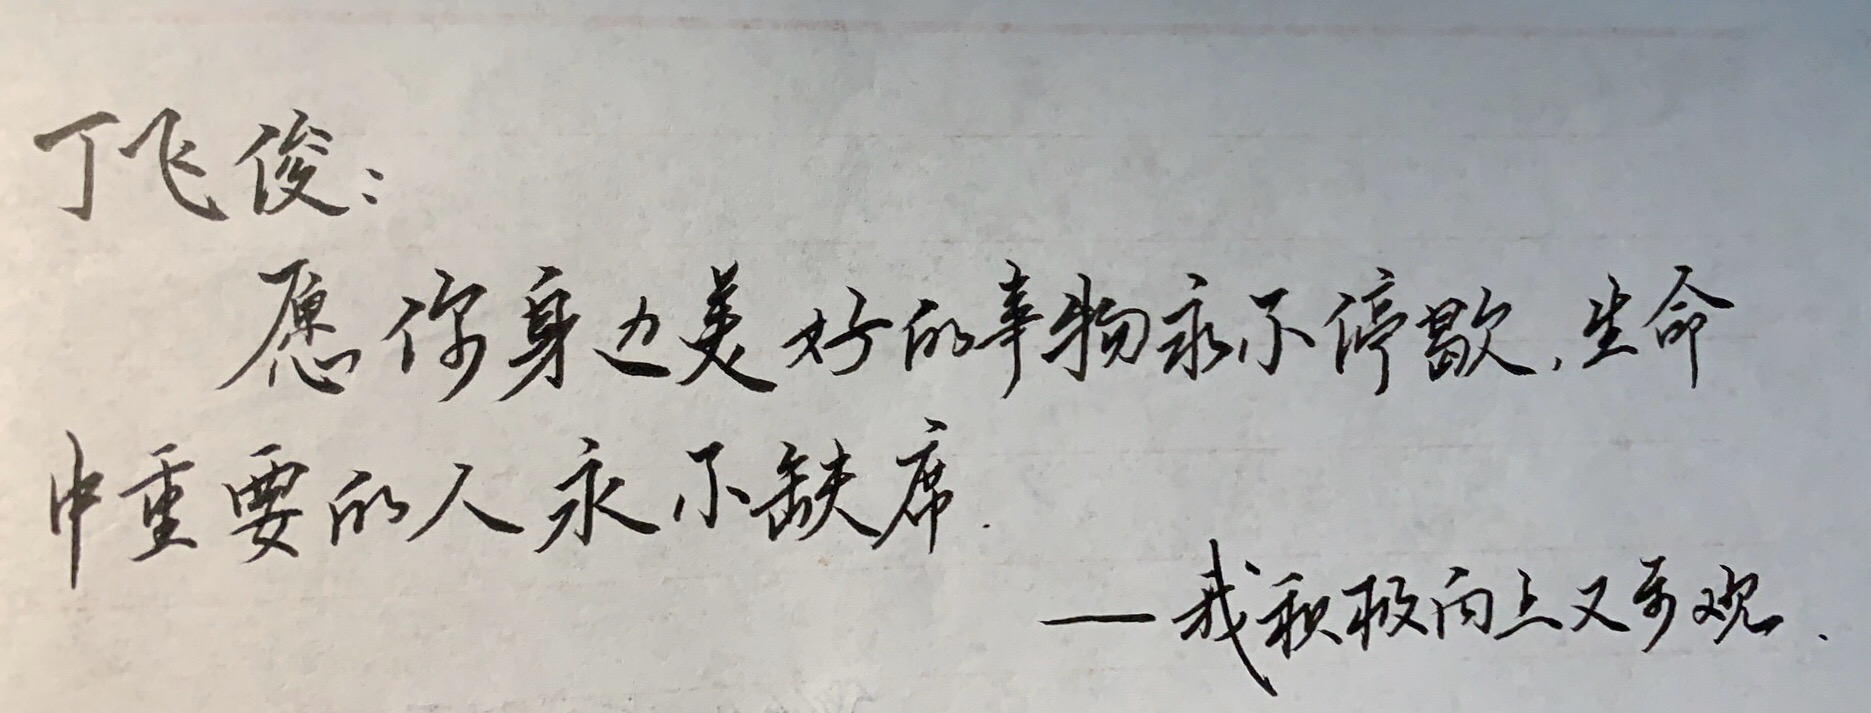 丁飞俊：
愿你身边美好的事物永不停歇，生命
中重要的人永不缺席.
——我积极向上又乐观.